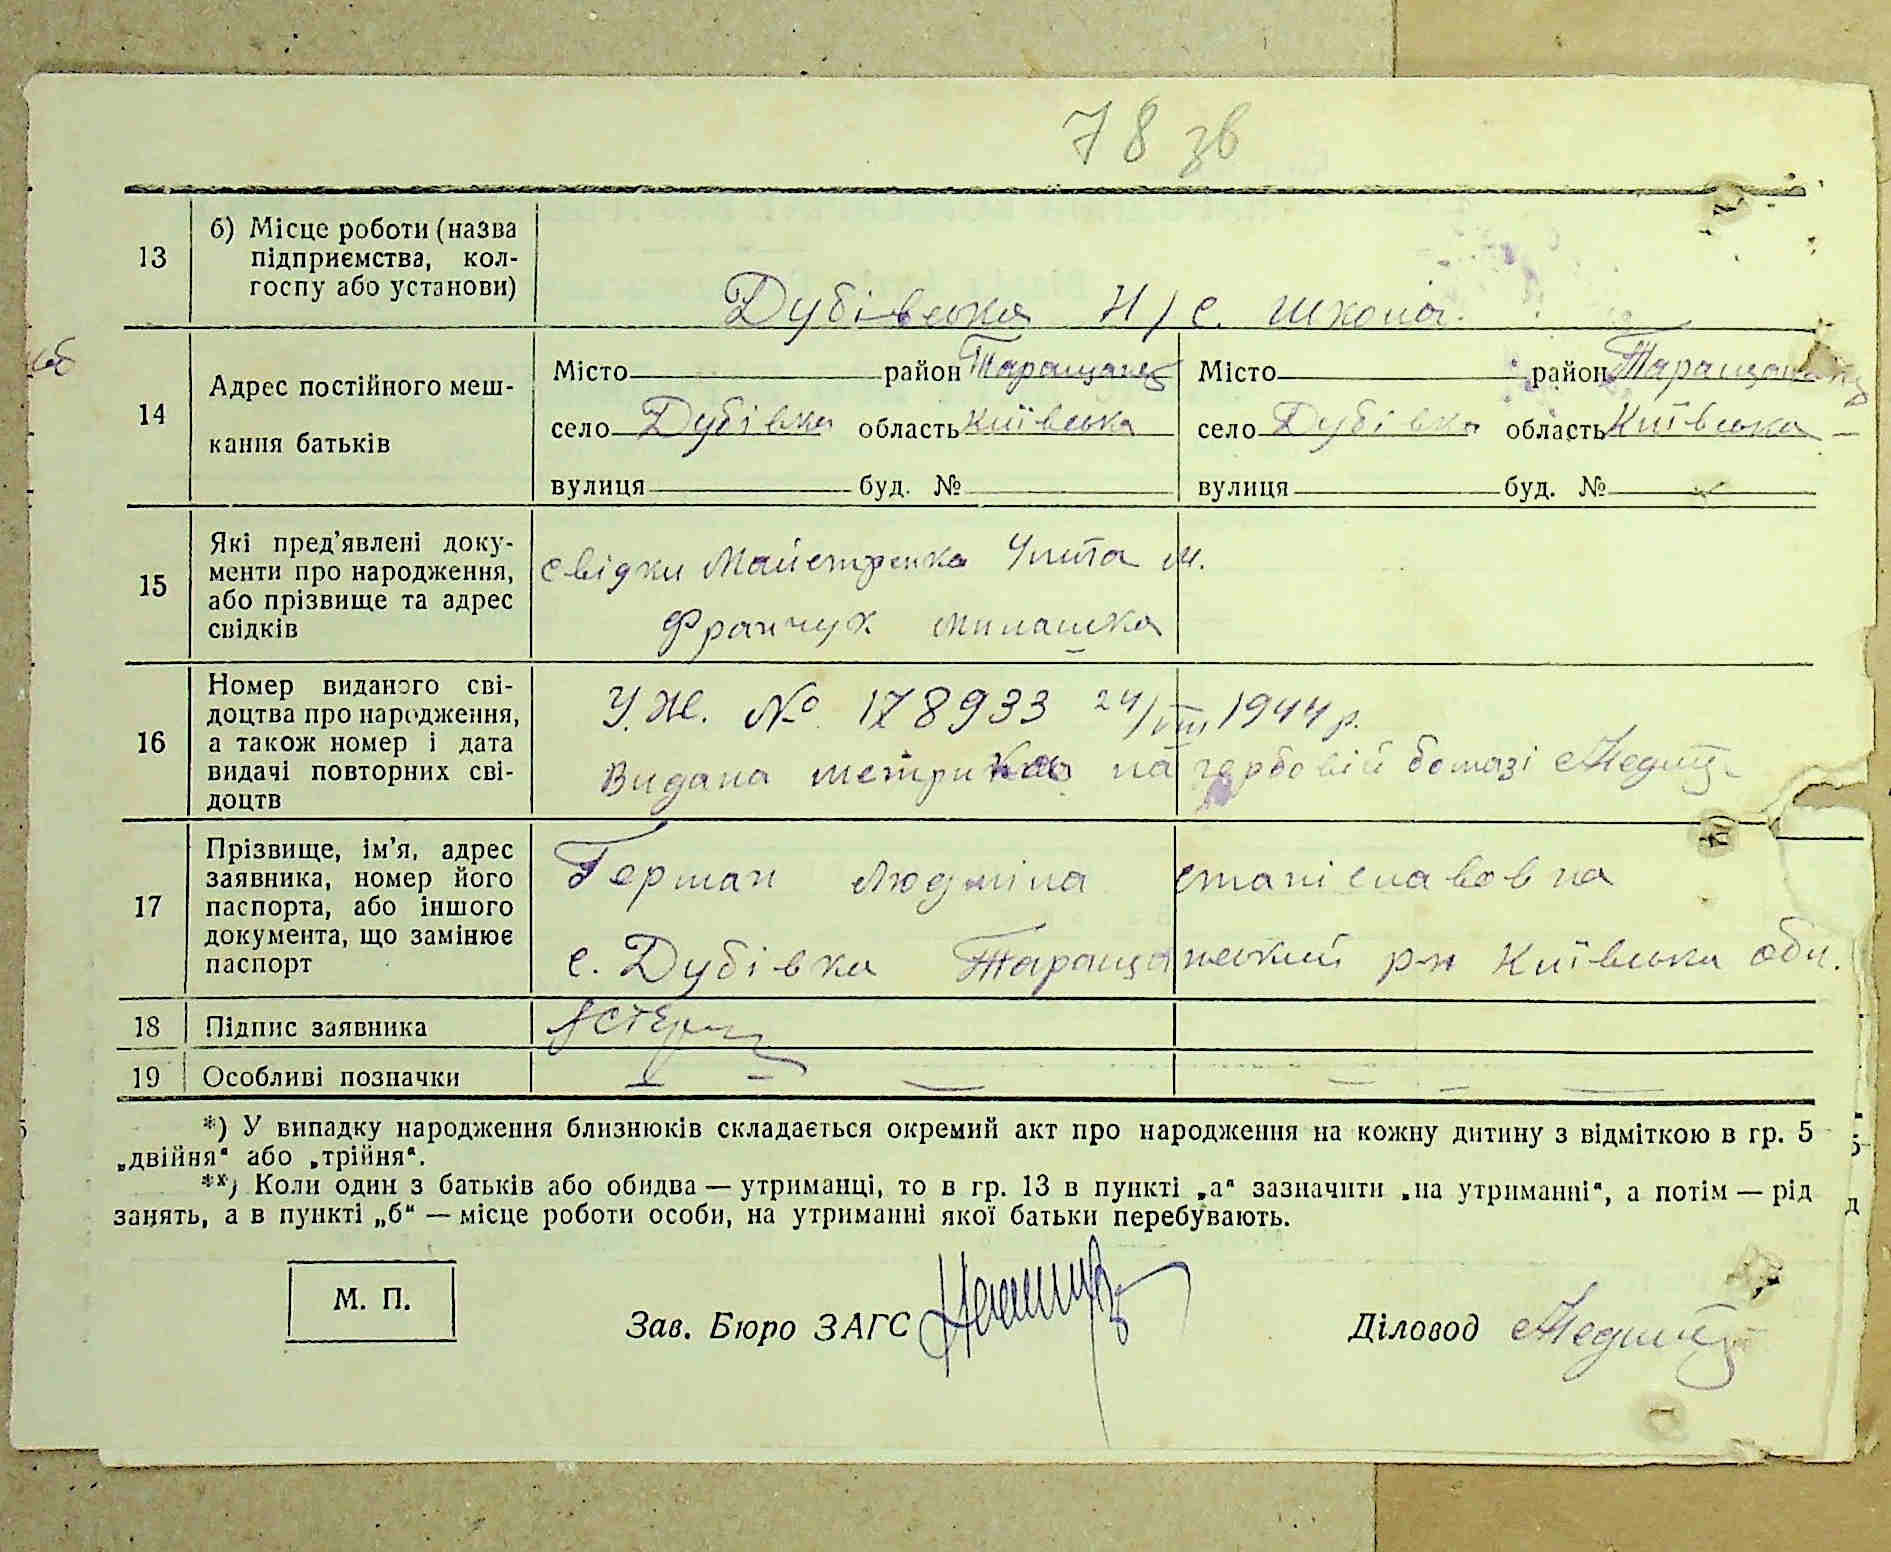 78 зв
13
б) Місце роботи (назва
підприємства, кол-
госпу або установи)
Дубівська Н/С. школа.
14
Адрес постійного меш-
кання батьків
Місто район Таращанс
село Дубівка область Київська
вулиця буд. №
Місто район
село Дубівка область Київська
вулиця буд. №
15
Які пред'явлені доку-
менти про народження,
або прізвище та адрес
свідків
свідки Майстренко М.
Франчук
16
Номер виданого сві-
доцтва про народження,
а також номер і дата
видачі повторних сві-
доцтв
У.Ж. № 178933 24/VIII 1944 р.
Видана метрика на гербовій бомазі
17
Прізвище, ім'я, адрес
заявника, номер його
паспорта, або іншого
документа, що замінює
паспорт
Герман Людміла Станіславовна
с. Дубівка Таращанський р-н Київська обл.
18
Підпис заявника
19
Особливі позначки
*) У випадку народження близнюків складається окремий акт про народження на кожну дитину з відміткою в гр. 5
„двійня“ або „трійня“.
**) Коли один з батьків або обидва — утриманці, то в гр. 13 в пункті „а“ зазначити „на утриманні“, а потім — рід
занять, а в пункті „б“ — місце роботи особи, на утриманні якої батьки перебувають.
М. П.
Зав. Бюро ЗАГС
Діловод